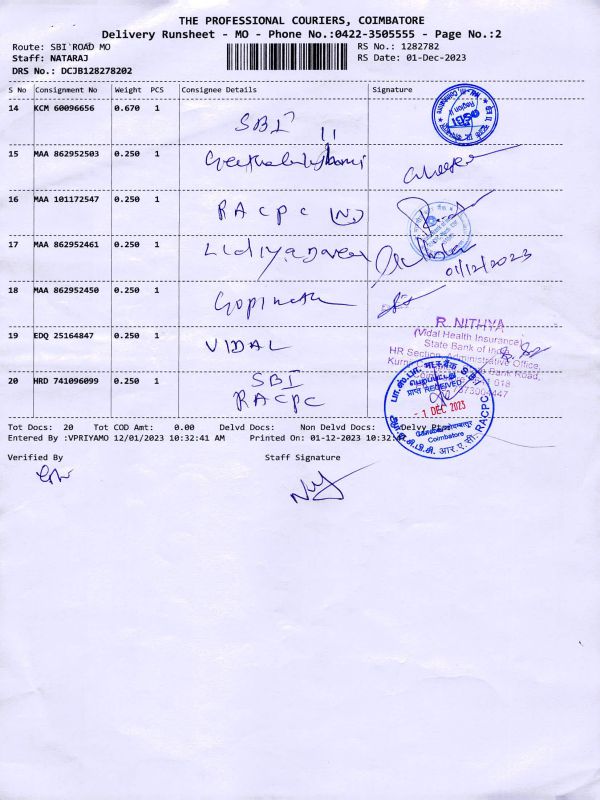 THE PROFESSIONAL COURIERS, COIMBATORE
Delivery Runsheet - MO - Phone No.:0422-3505555 - Page No.:2
Route: SBI ROAD MO
RS No.: 1282782
Staff: NATARAJ
RS Date: 01-Dec-2023
DRS No.: DCJB128278202
S No Consignment No Weight PCS Consignee Details Signature
14 KCM 60096656 0.670 1 SBI
15 MAA 862952503 0.250 1
16 MAA 101172547 0.250 1 RACPC
17 MAA 862952461 0.250 1
01/12/2023
18 MAA 862952450 0.250 1 Gopinath
R. NITHYA
(Vidal Health Insurance)
State Bank of India
19 EDQ 25164847 0.250 1 VIDAL
HR Section, Administrative Office,
20 HRD 741096099 0.250 1 SBI RACPC
RECEIVED
- 1 DEC 2023
Coimbatore
RACPC
Tot Docs: 20 Tot COD Amt: 0.00 Delvd Docs: Non Delvd Docs:
Entered By :VPRIYAMO 12/01/2023 10:32:41 AM Printed On: 01-12-2023
Verified By Staff Signature